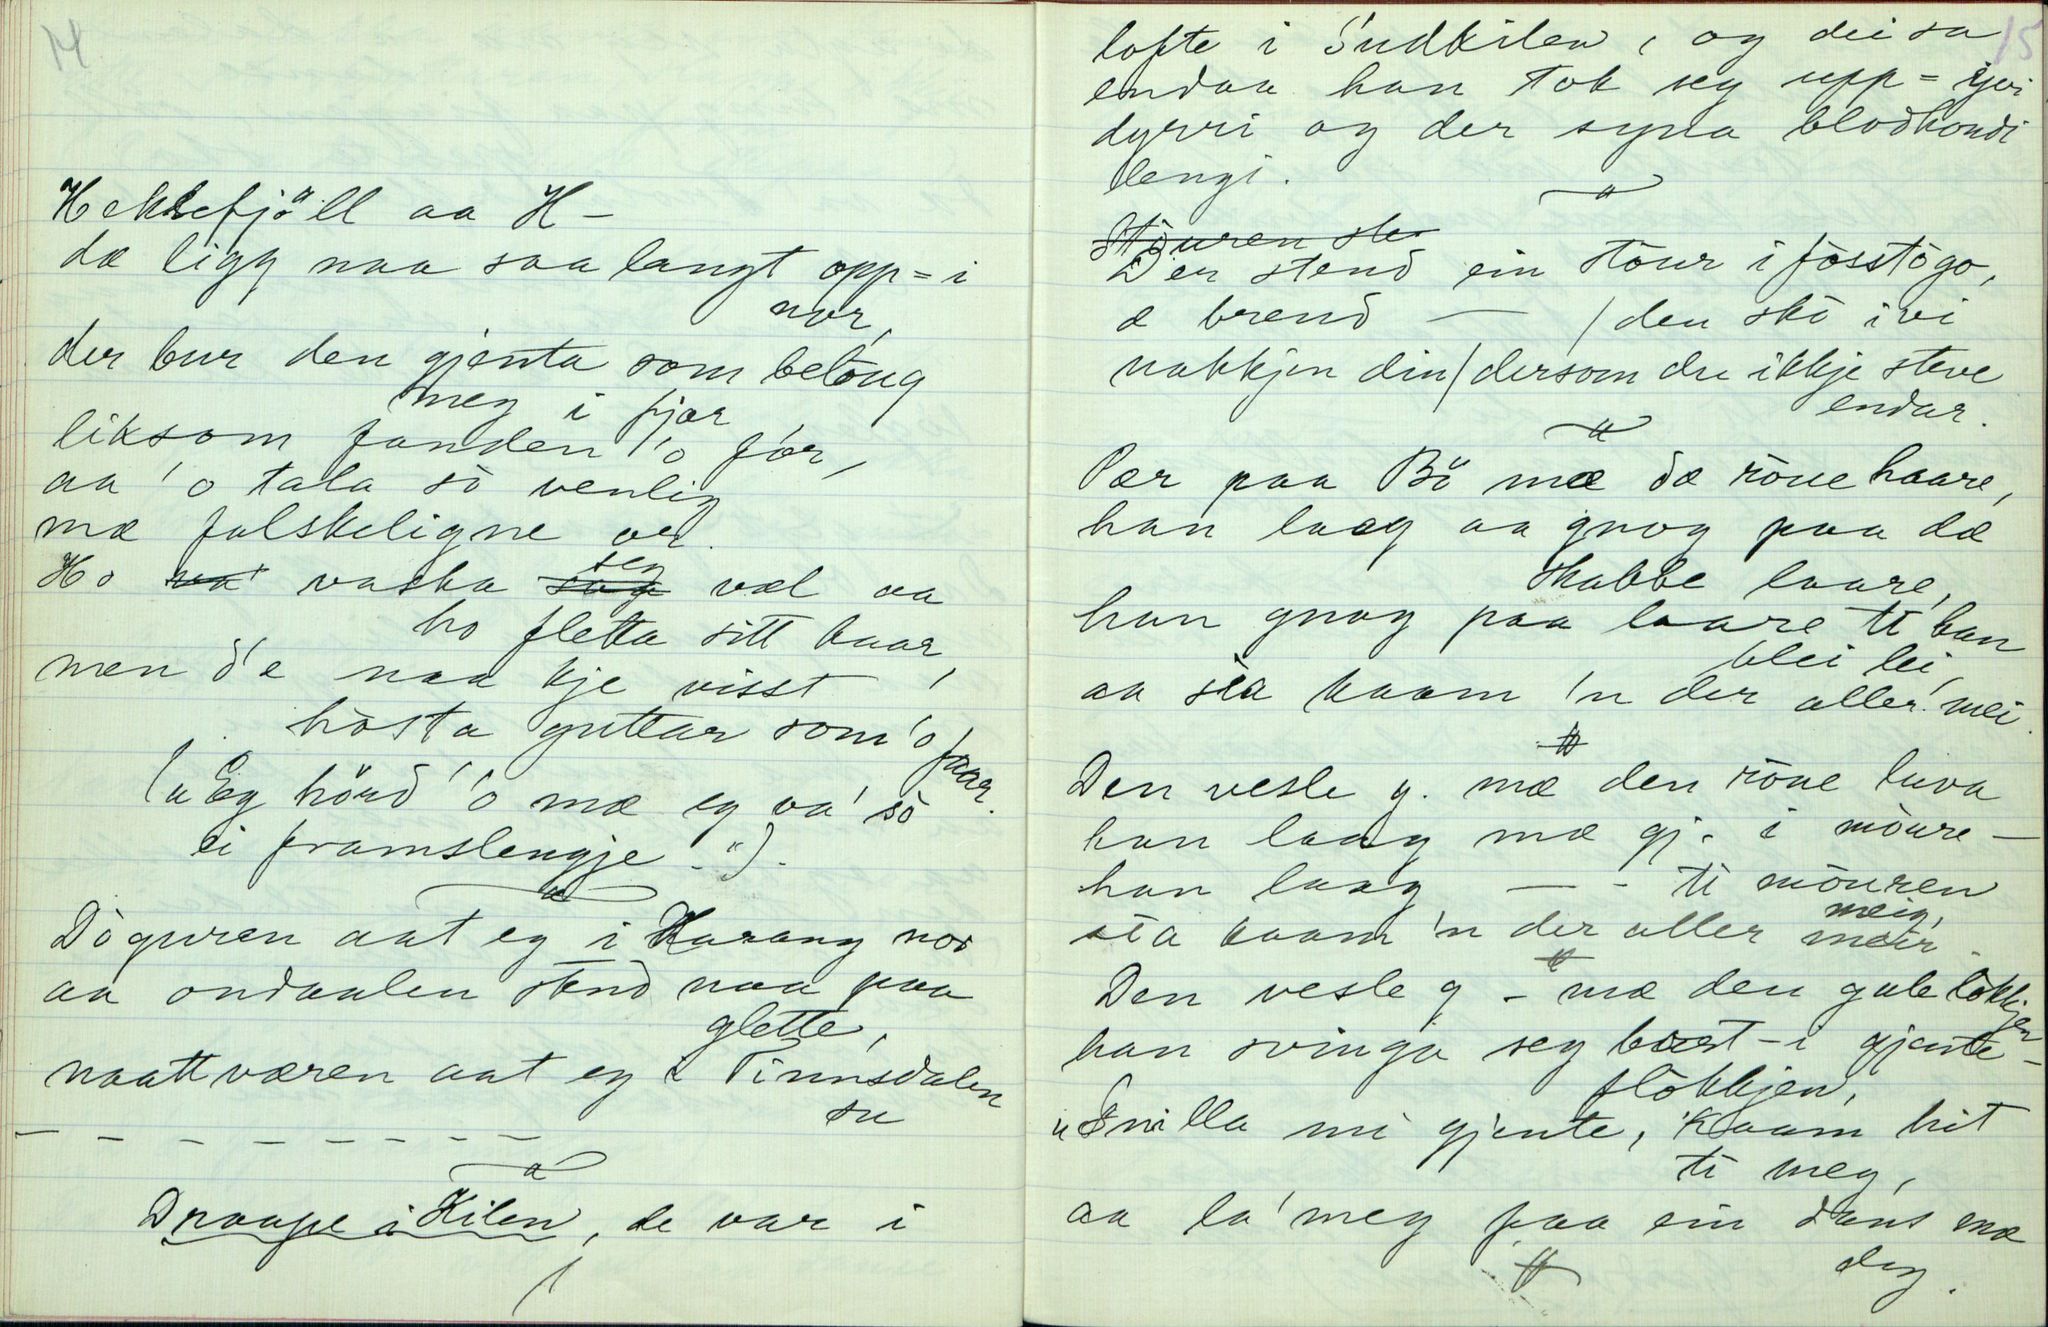 14
Heksefjöll aa H-
dæ ligg naa saa langt opp=i
nor,
der bur den gjenta som betoug
meg i fjor
liksom fanden 'o for,
aa 'o tala sò venlig
mæ falskeligne or.
Ho va' vaska seg væl aa
ho fletta sitt haar,
men d'e naa kje visst
hòsta guttar som 'o faar.
("Eg hörd 'o mæ eg va' sò
ei framslengje.").
Dòguren aat eg i Harang nor
aa ondaalen stend naa paa
glette,
naattværen aat eg i Tinnsdalen
su
— — — — — — — —
Draape i Kilen, de var i
15
lofte i Sudkilen, og dei sa
endaa han tok seg upp=yvi
dyrri og der syna blodhondi
lengi.
Stouren sto
Der stend ein stour i fòsstògo,
æ brend — / den skò ivi
nakkjen din / dersom du ikkje steve
endar.
Pær paa Bö mæ dæ ròue haare,
han laag aa gnog paa dæ
skabbe laare,
han gnog paa laare ti han
blei lei,
aa sia kaam 'n der aller mei.
Den vesle g. mæ den ròue luva
han laag mæ gj. i mòure —
han laag — - ti mòuren
sia kaam 'n der aller meir
meig,
Den vesle g - mæ den gule lokkjen
han svinga seg burt-i gjente-
flokkjen,
"Snilla mi gjente, kaam hit
ti meg,
aa la' meg faa ein dans mæ
deg.